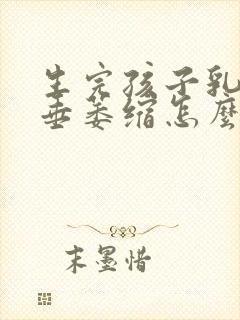 生完孩子乳
垂萎缩怎麽
末墨惜